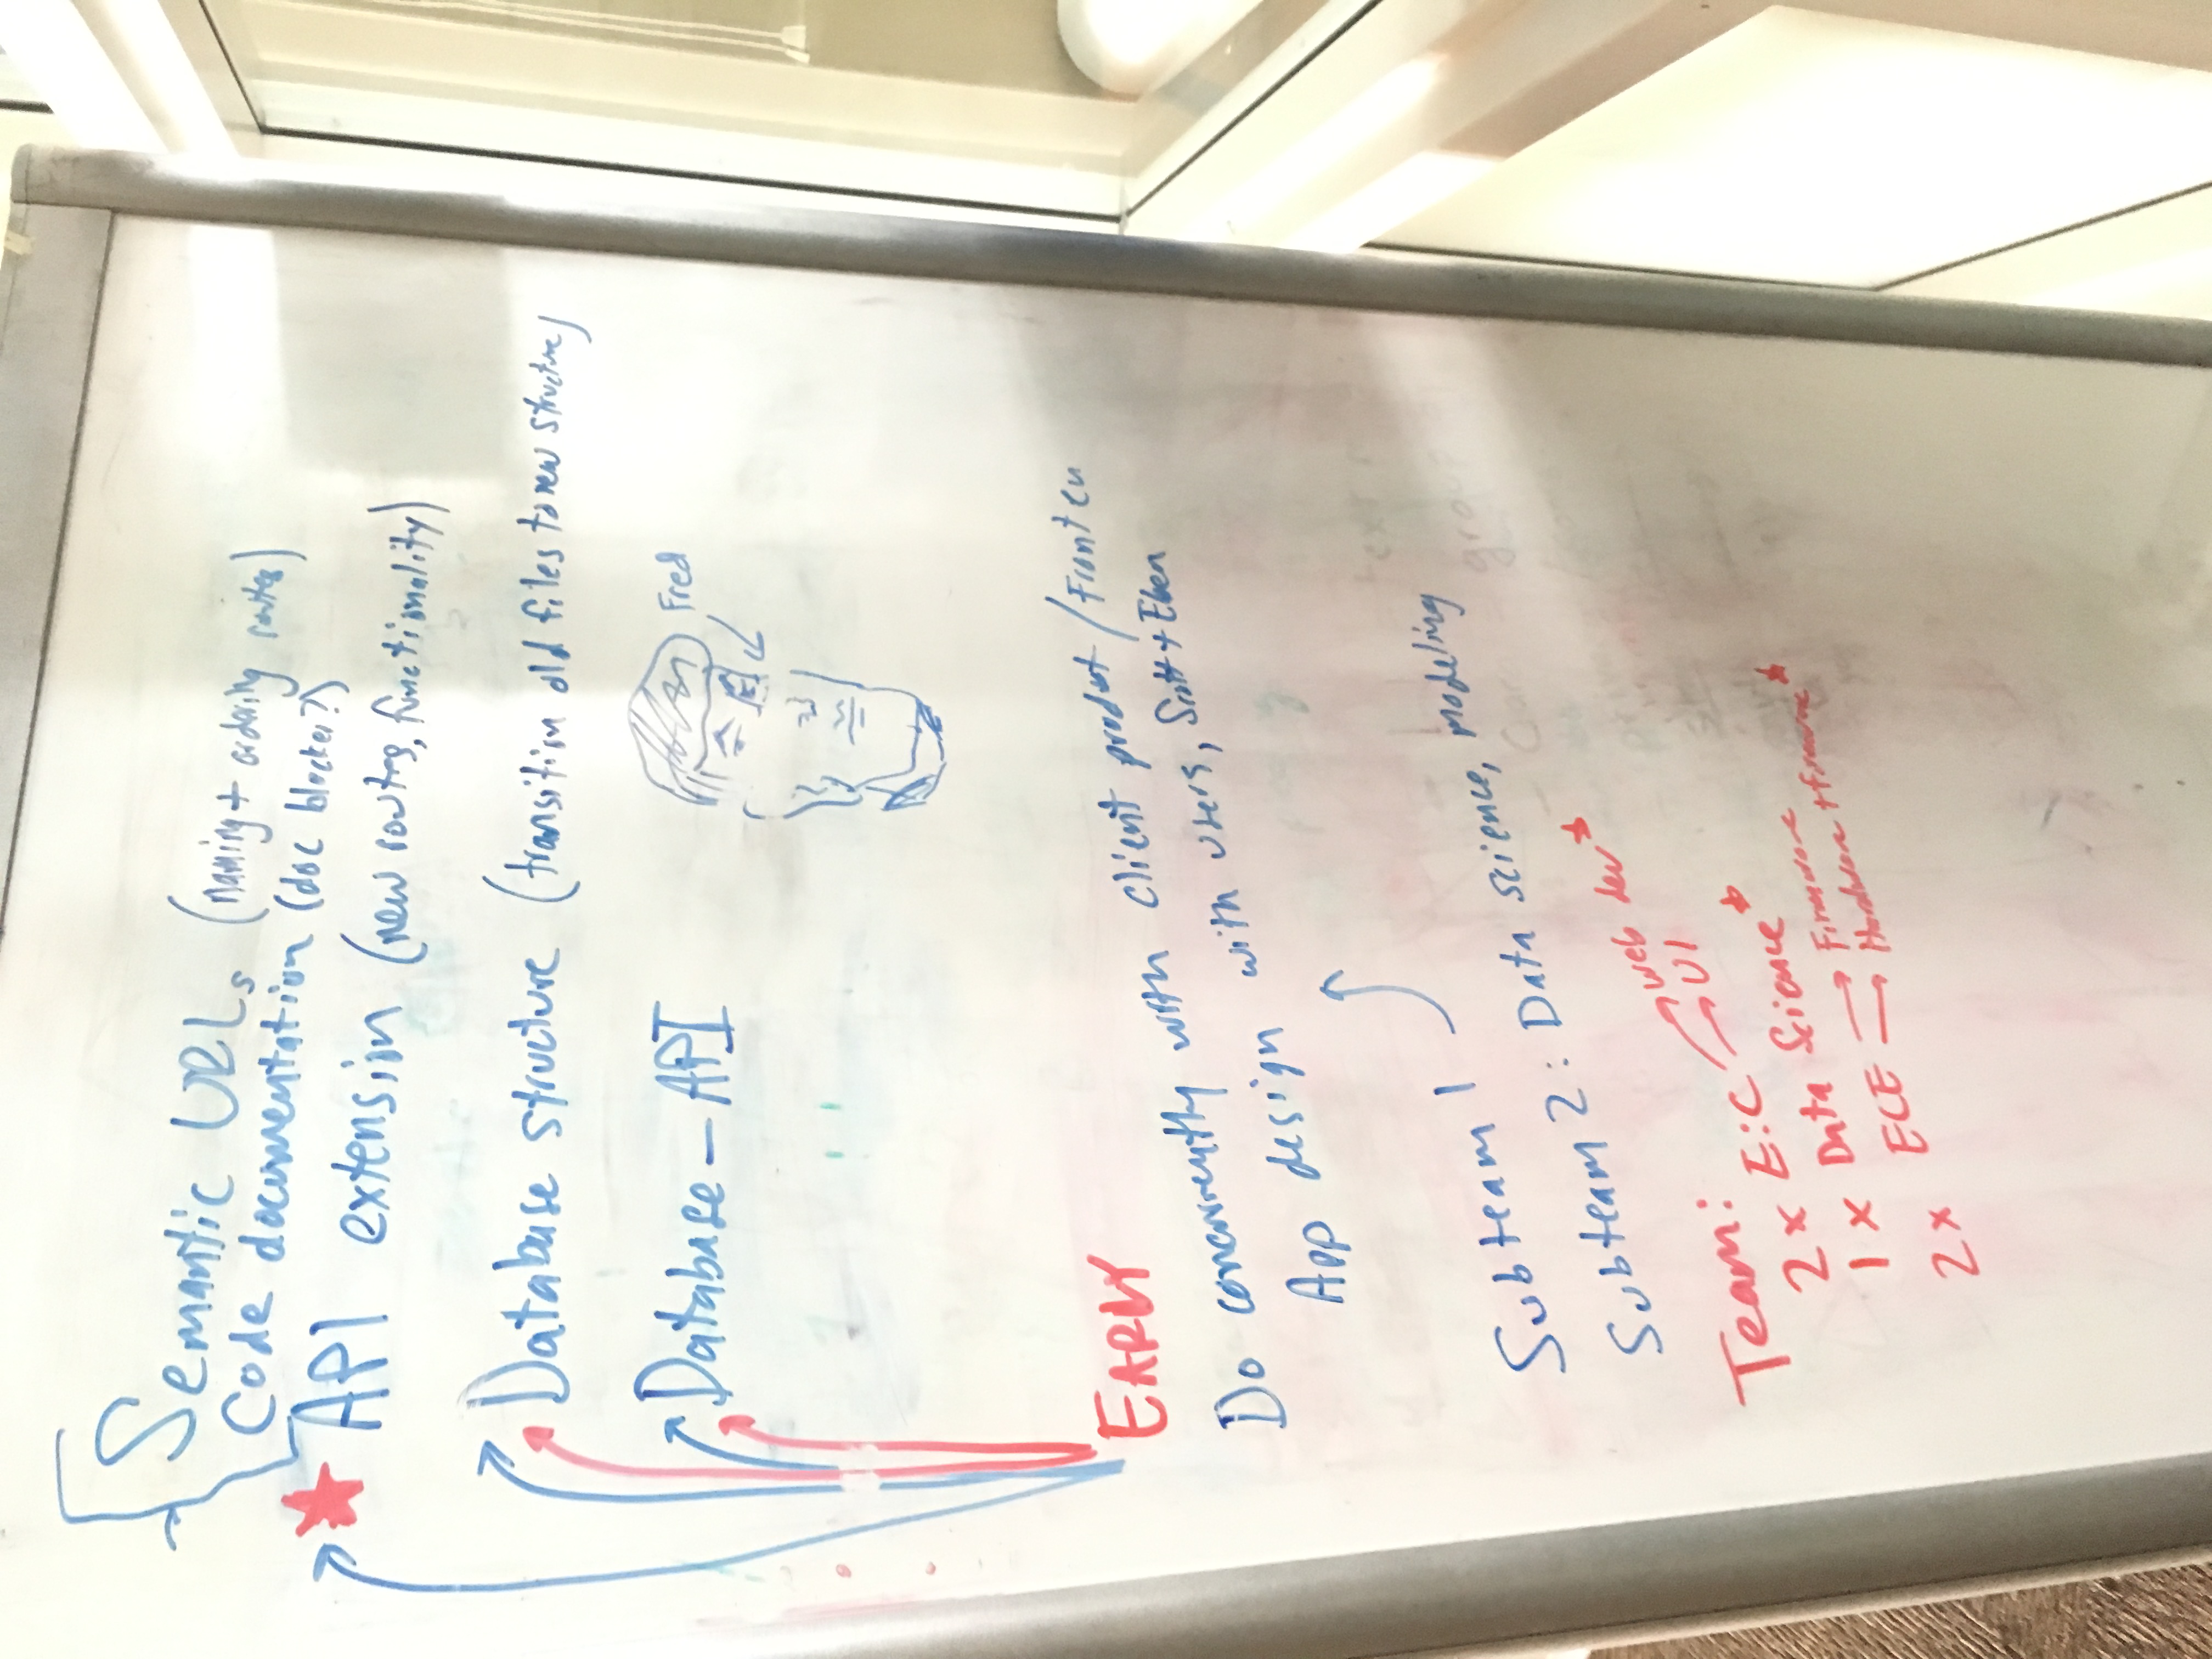 Semantic URLs (naming + ordering routes)
Code documentation (doc blocker?)
API extension (new routes, functionality)
Database structure (transition old files to new structure)
Database - API
Fred
EARLY
Do concurrently with client product / Fronten
App design with users, Scott + Eben
Subteam 1
Subteam 2: Data science, modeling
Team:
2x E:C web dev
UI
1x Data Science
2x ECE Firmware
Hardware + firmware